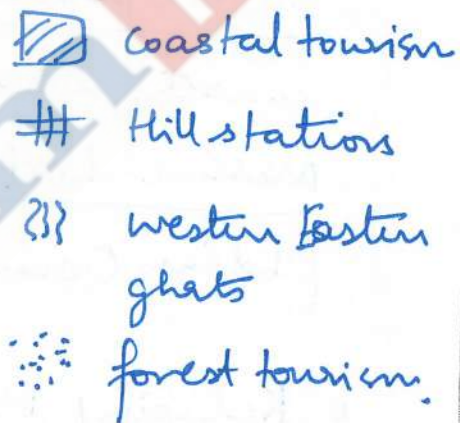 coastal tourism
Hill stations
western Eastern
ghats
forest tourism.